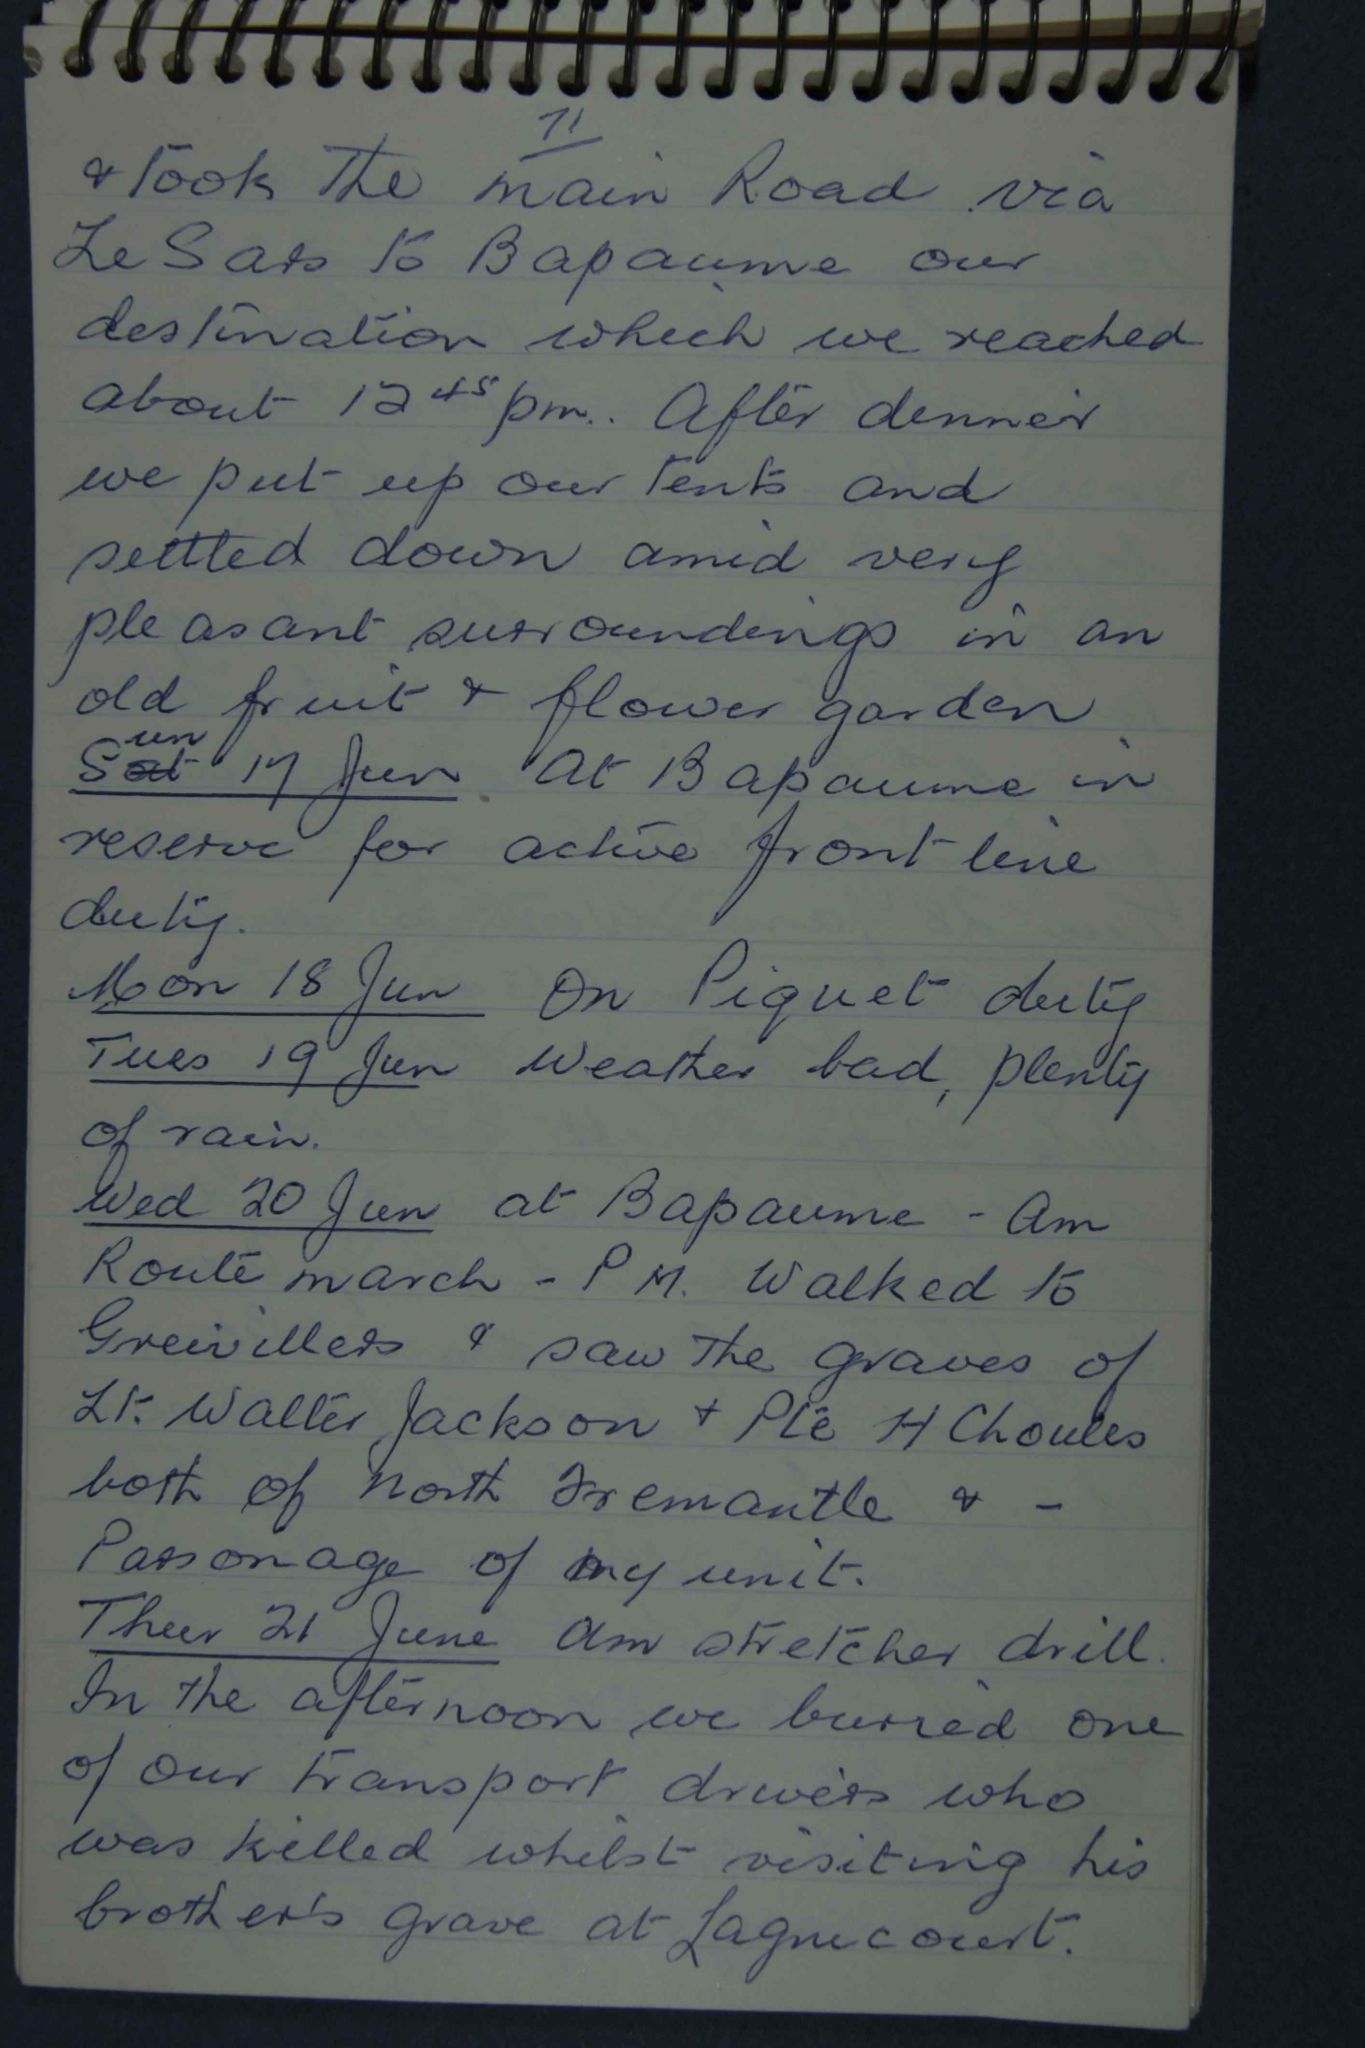 71
& took the main Road via
Le Sars to Bapaume our
destination which we reached
about 12 45 pm.. After dinner
we put up our tents and
settled down amid very
pleasant surroundings in an
old fruit & flower garden
Sat un 17 Jun At Bapaume in
reserve for active front line
duty.
Mon 18 Jun On Piquet duty
Tues 19 Jun Weather bad, plenty
of rain.
Wed 20 Jun at Bapaume - Am
Route march - P M. Walked to
Greivillers & saw the graves of
Lt. Walter Jackson + Pte H Choules
both of North Fremantle & -
Parsonage of my unit.
Thur 21 June Am stretcher drill.
In the afternoon we burried one
of our transport drivers who
was killed whilst visiting his
brother's grave at Lagnicourt.